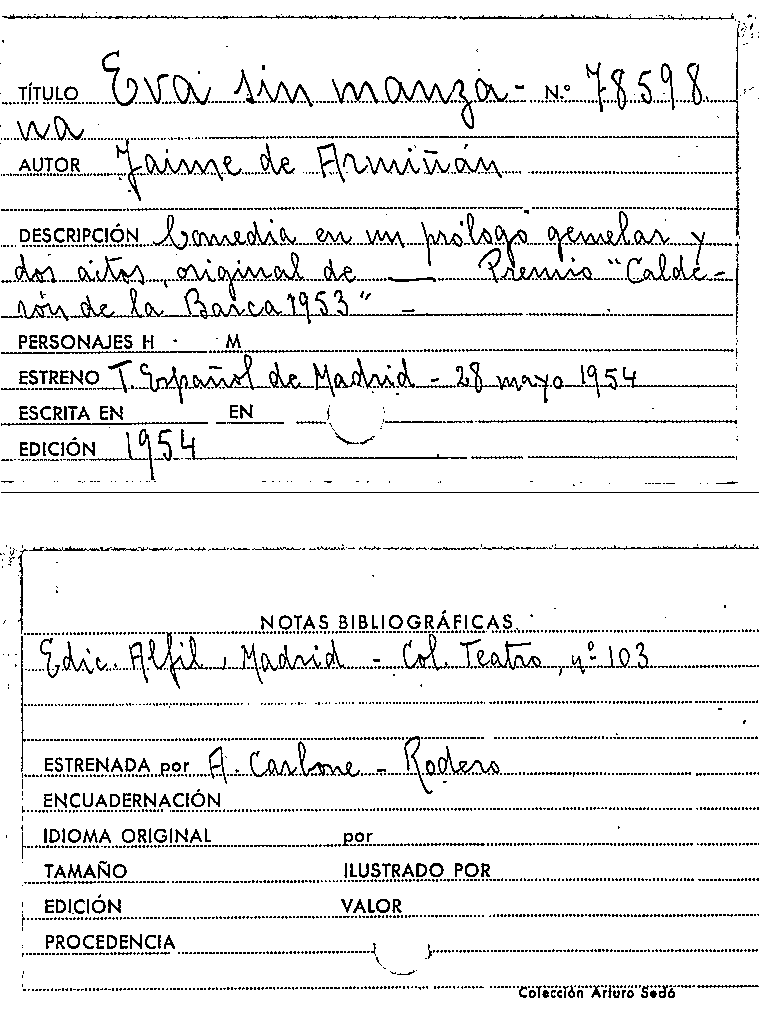 TÍTULO Eva sin manza- N.º 78598
na
AUTOR Jaime de Armiñán
DESCRIPCIÓN Comedia en un prólogo gemelar y
dos actos, original de ___ Premio "Calde-
rón de la Barca 1953" -
PERSONAJES H M
ESTRENO T. Español de Madrid - 28 mayo 1954
ESCRITA EN EN
EDICIÓN 1954
NOTAS BIBLIOGRÁFICAS
Edic. Alfil, Madrid - Col. Teatro, nº 103
ESTRENADA por A. Carbone - Rodero
ENCUADERNACIÓN
IDIOMA ORIGINAL por
TAMAÑO ILUSTRADO POR
EDICIÓN VALOR
PROCEDENCIA
Colección Arturo Sedó